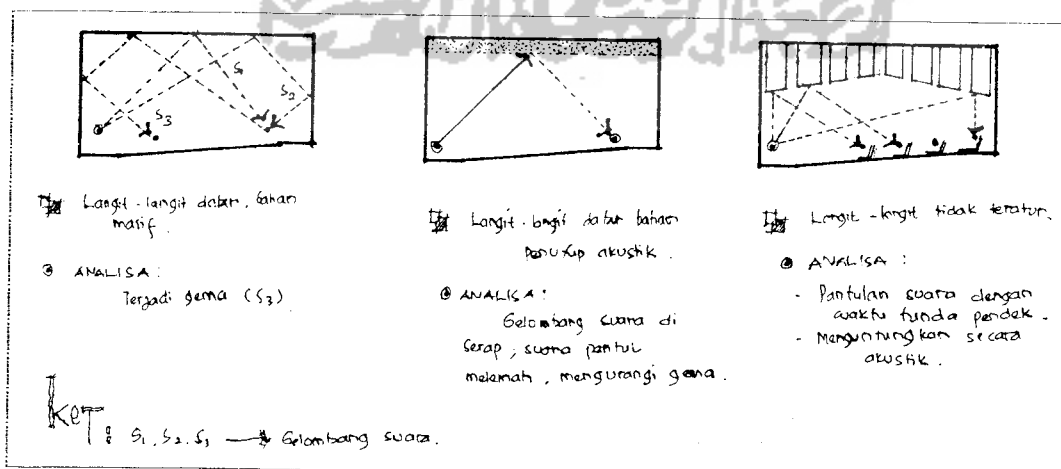 S1
S2
S3
Langit-langit datar, bahan
masif.
ANALISA:
Terjadi gema (S3)
Langit-langit datar bahan
penutup akustik.
ANALISA:
Gelombang suara di
serap, suara pantul
melemah, mengurangi gema.
Langit-langit tidak teratur.
ANALISA:
- Pantulan suara dengan
waktu tunda pendek.
- Menguntungkan secara
akustik.
KET:
S1, S2, S3 → Gelombang suara.